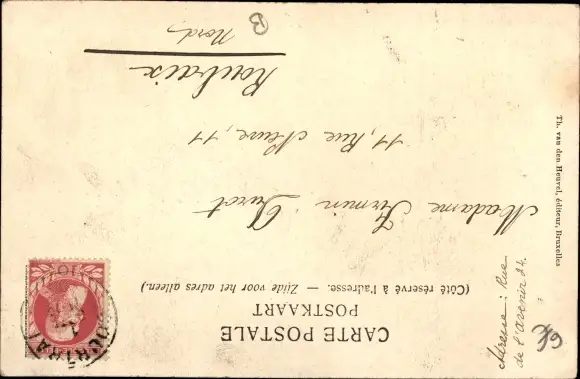 CARTE POSTALE
POSTKAART
(Côté réservé à l'adresse. — Zijde voor het adres alleen.)
Madame Firmin
11, Rue Neuve, 11
Roubaix
Nord
B
Th. van den Heuvel, éditeur, Bruxelles
Rue
de l'avenir 24.